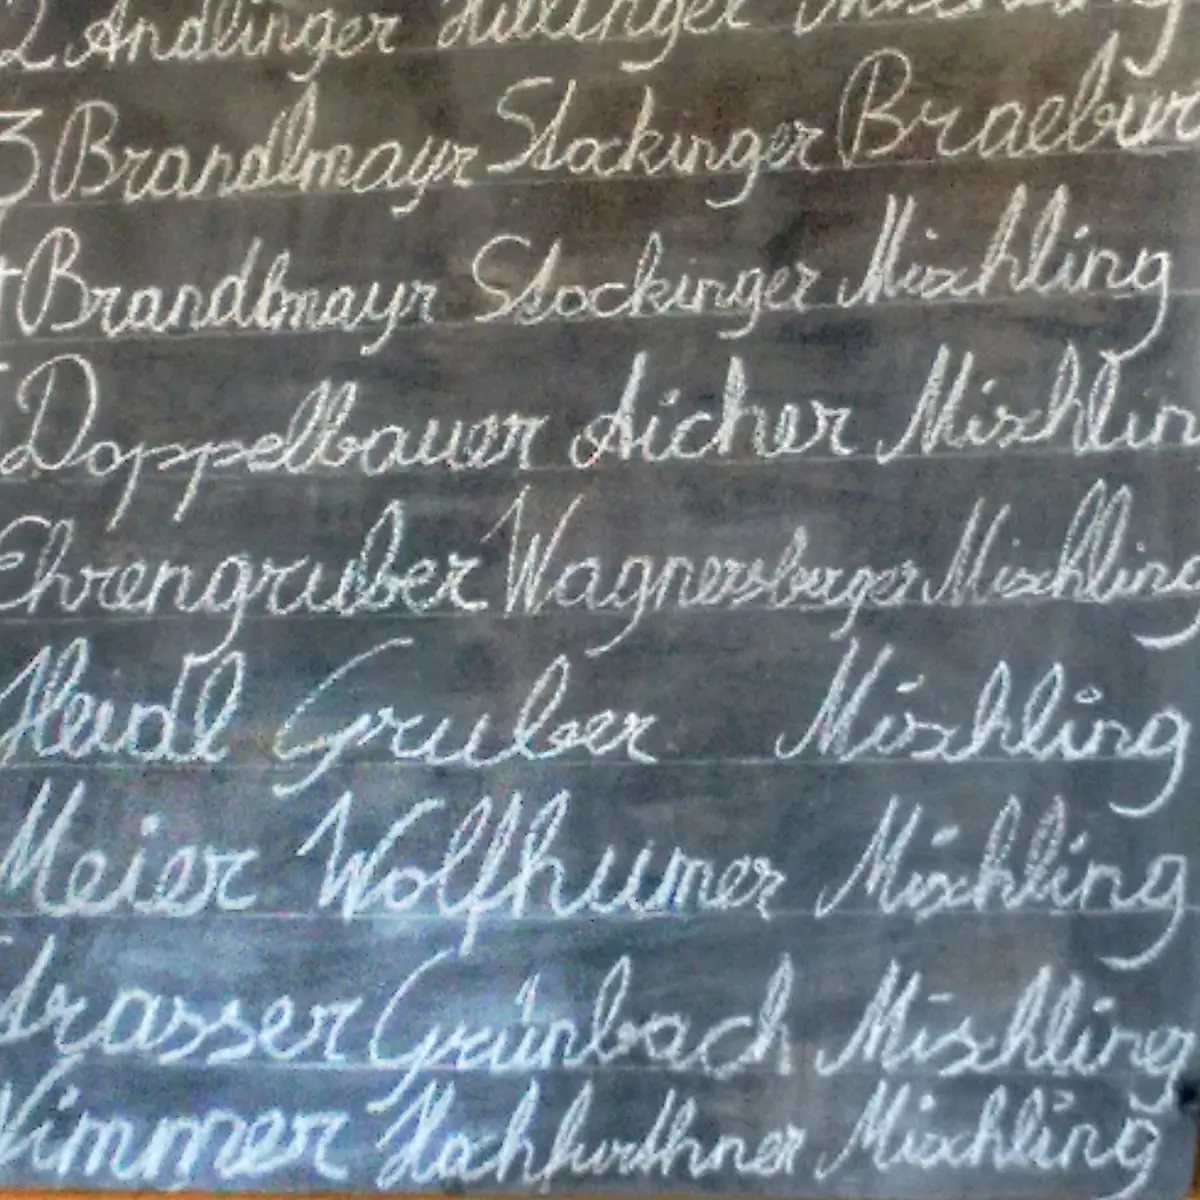 2 Andlinger Hillinger Mischling
3 Brandlmayr Stockinger Braebur
4 Brandlmayr Stockinger Mischling
Doppelbauer Aicher Mischlin
Ehrengruber Wagnersberger Mischling
Heidl Gruber Mischling
Meier Wolfhumer Mischling
Strasser Grünbach Mischling
Wimmer Mischling